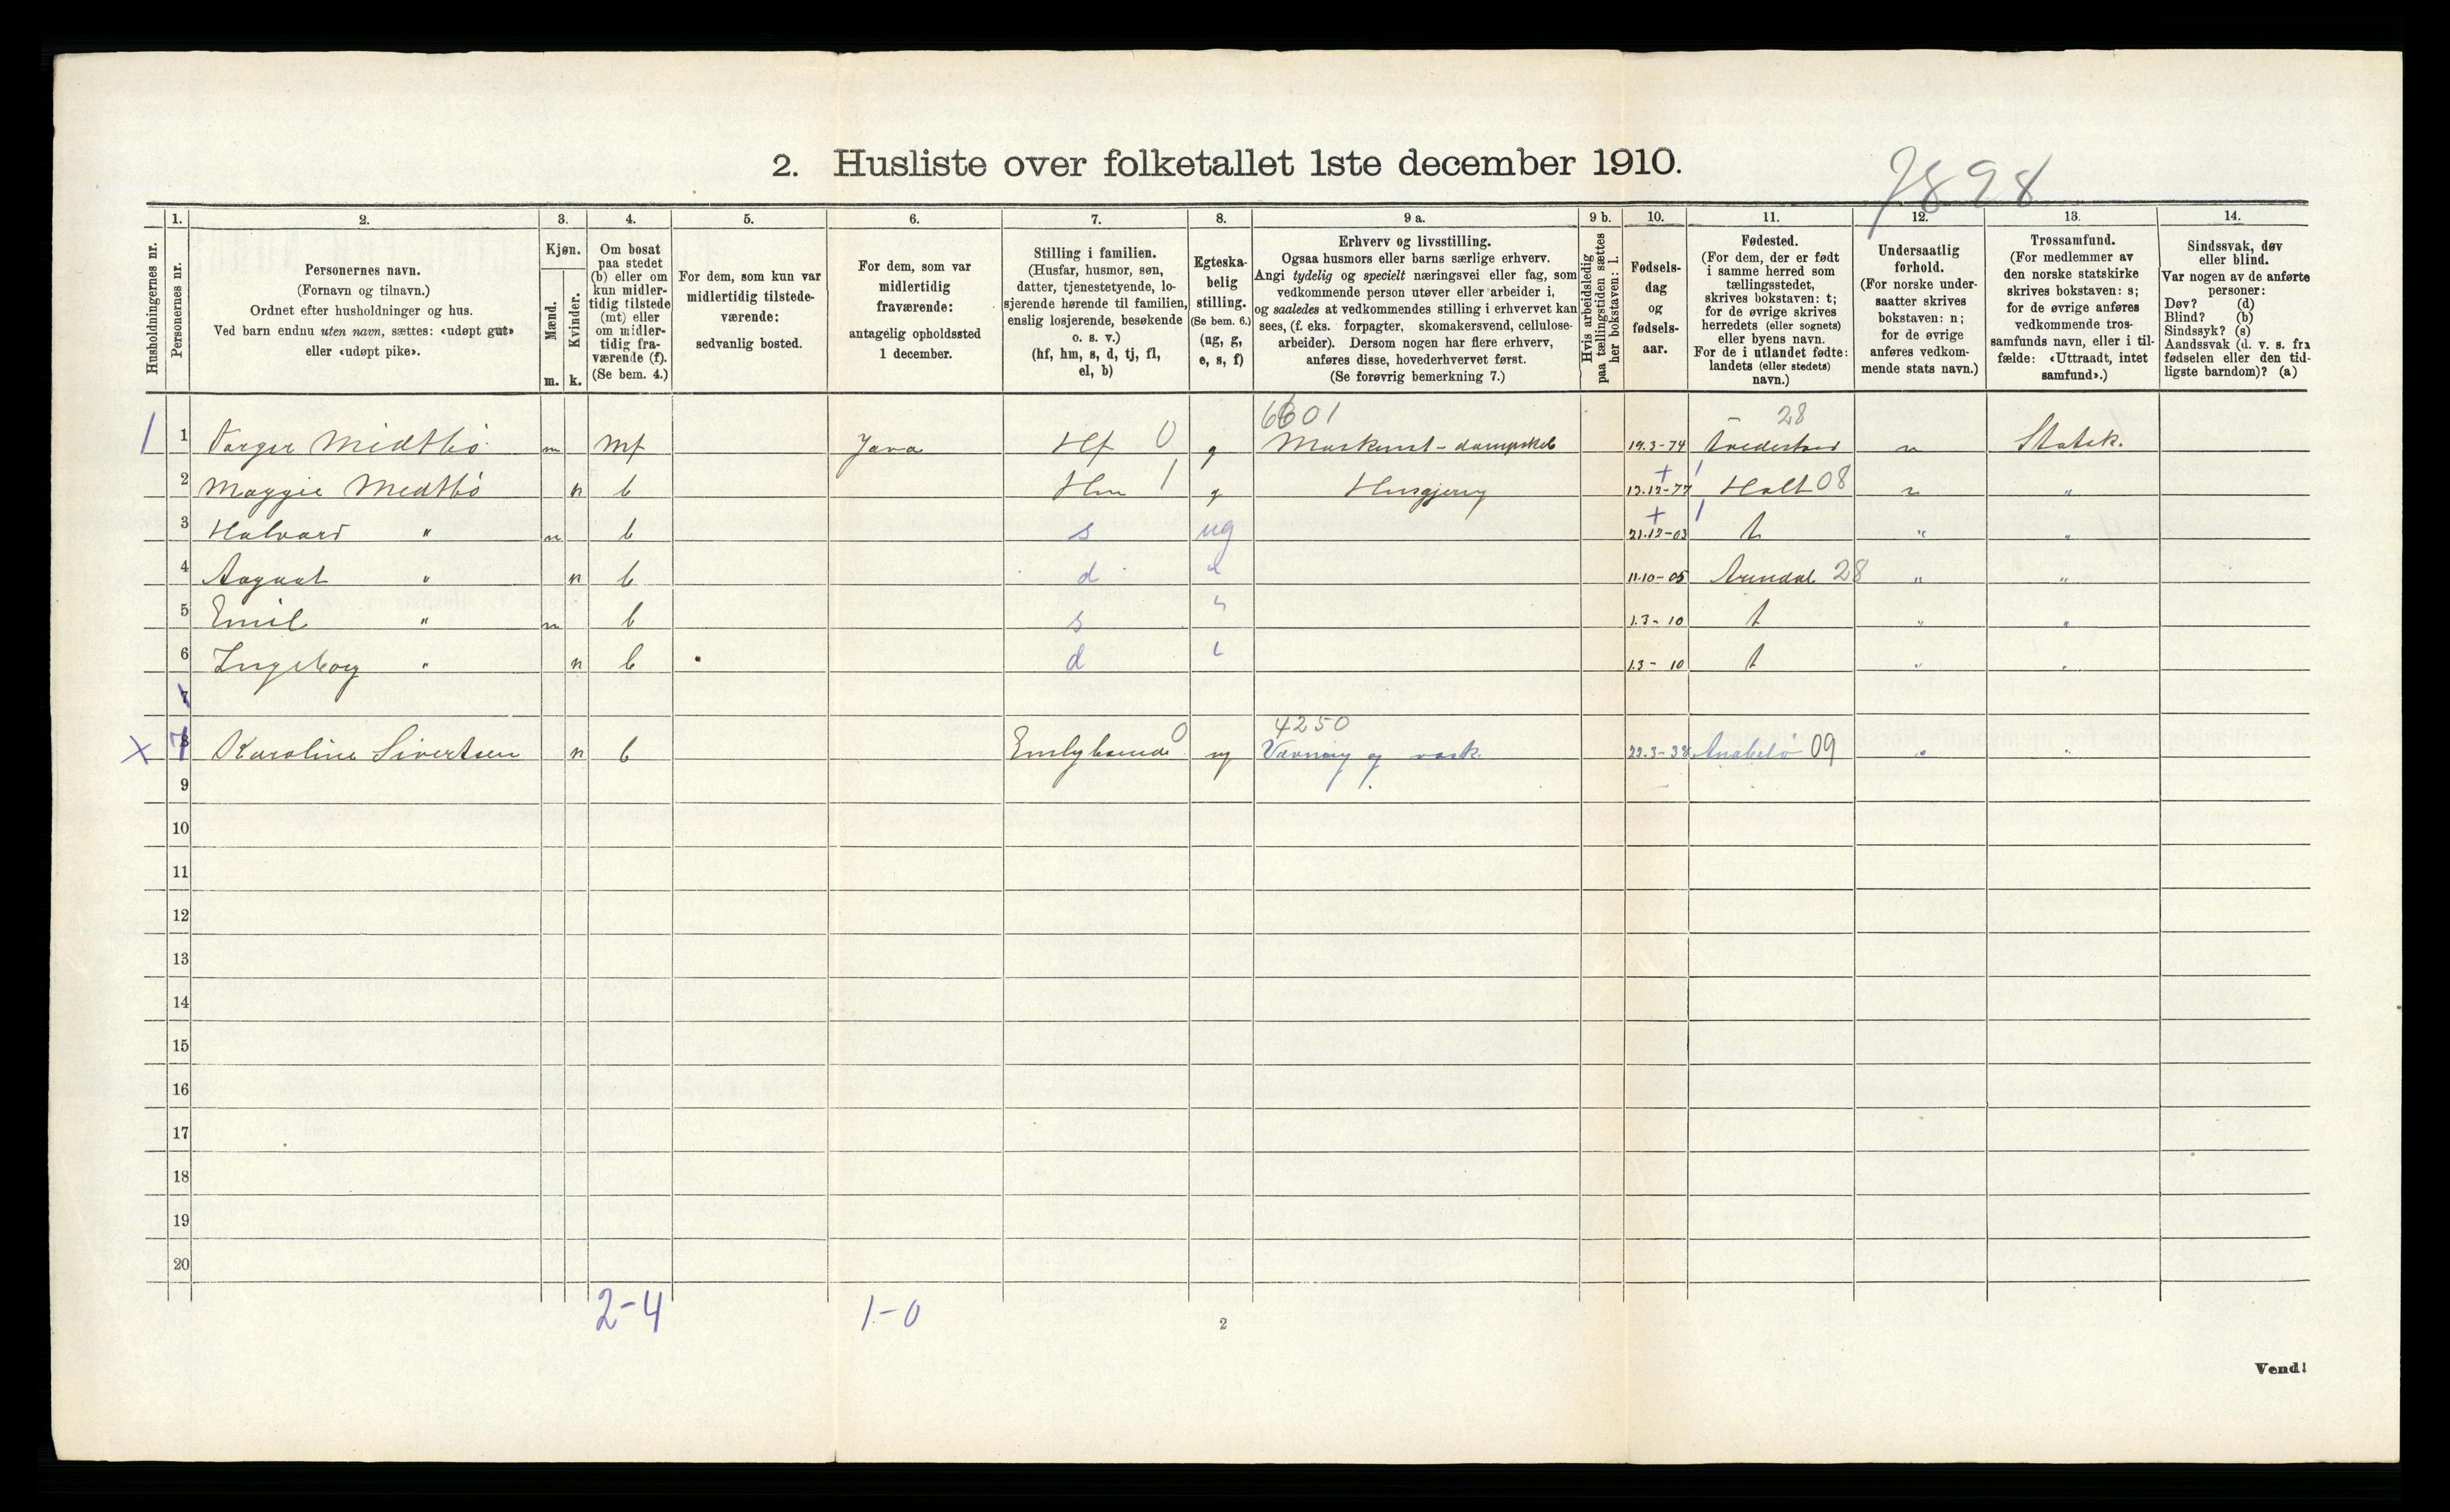 2. Husliste over folketallet 1ste december 1910.
7898
Husholdningernes nr.
1.
Personernes nr.
2.
Personernes navn.
(Fornavn og tilnavn.)
Ordnet efter husholdninger og hus.
Ved barn endnu uten navn, sættes: «udøpt gut»
eller «udøpt pike».
3.
Kjøn.
Mænd.
Kvinder.
m. k.
4.
Om bosat
paa stedet
(b) eller om
kun midler-
tidig tilstede
(mt) eller
om midler-
tidig fra-
værende (f).
(Se bem. 4.)
5.
For dem, som kun var
midlertidig tilstede-
værende:
sedvanlig bosted.
6.
For dem, som var
midlertidig
fraværende:
antagelig opholdssted
1 december.
7.
Stilling i familien.
(Husfar, husmor, søn,
datter, tjenestetyende, lo-
sjerende hørende til familien,
enslig losjerende, besøkende
o. s. v.)
(hf, hm, s, d, tj, fl,
el, b)
8.
Egteska-
belig
stilling.
(Se bem. 6.)
(ug, g,
e, s, f)
9 a.
Erhverv og livsstilling.
Ogsaa husmors eller barns særlige erhverv.
Angi tydelig og specielt næringsvei eller fag, som
vedkommende person utøver eller arbeider i,
og saaledes at vedkommendes stilling i erhvervet kan
sees, (f. eks. forpagter, skomakersvend, cellulose-
arbeider). Dersom nogen har flere erhverv,
anføres disse, hovederhvervet først.
(Se forøvrig bemerkning 7.)
9 b.
Hvis arbeidsledig
paa tællingstiden sættes
her bokstaven: l.
10.
Fødsels-
dag
og
fødsels-
aar.
11.
Fødested.
(For dem, der er født
i samme herred som
tællingsstedet,
skrives bokstaven: t;
for de øvrige skrives
herredets (eller sognets)
eller byens navn.
For de i utlandet fødte:
landets (eller stedets)
navn.)
12.
Undersaatlig
forhold.
(For norske under-
saatter skrives
bokstaven: n;
for de øvrige
anføres vedkom-
mende stats navn.)
13.
Trossamfund.
(For medlemmer av
den norske statskirke
skrives bokstaven: s;
for de øvrige anføres
vedkommende tros-
samfunds navn, eller i til-
fælde: «Uttraadt, intet
samfund».)
14.
Sindssvak, døv
eller blind.
Var nogen av de anførte
personer:
Døv? (d)
Blind? (b)
Sindssyk? (s)
Aandssvak (d. v. s. fra
fødselen eller den tid-
ligste barndom)? (a)
6601 28
1 1 Torger Midtbö m mf Java Hf 0 g Maskinist-dampskib 19.3-74 Tvedestrand n Statsk.
2 Maggie Midtbö k b Hm 1 g Husgjerng 13.12-77 Holt 08 n "
3 Halvard " m b s ug 21.12-03 t " "
4 Aagaat " k b d " 11.10-05 Arendal 28 " "
5 Emil " m b s " 1.3-10 t " "
6 Ingeborg " k b d " 1.3-10 t " "
7
4250
X 7 8 Karoline Sivertsen k b Enslylosende 0 ug Vævning og vask. 22.3-38 09 " "
9
10
11
12
13
14
15
16
17
18
19
20
2-4 1-0
2
Vend!